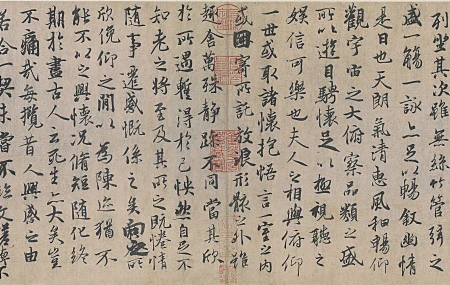 列坐其次雖無絲竹管弦之
盛一觴一詠亦足以暢敘幽情
是日也天朗氣清惠風和暢仰
觀宇宙之大俯察品類之盛
所以遊目騁懷足以極視聽之
娛信可樂也夫人之相與俯仰
一世或取諸懷抱悟言一室之內
或因寄所託放浪形骸之外雖
趣舍萬殊靜躁不同當其欣
於所遇暫得於己怏然自足不
知老之將至及其所之既惓情
隨事遷感慨係之矣向之所
欣俛仰之間以為陳迹猶不
能不以之興懷況脩短隨化終
期於盡古人云死生亦大矣豈
不痛哉每攬昔人興感之由
若合一契未嘗不臨文嗟悼不